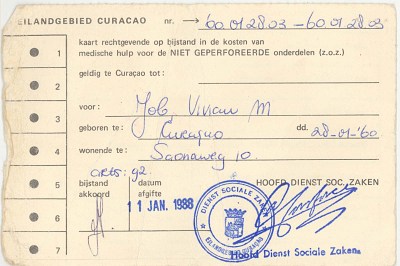 EILANDGEBIED CURACAO nr. → 60.01.28.03 - 60.01.28.03
1 kaart rechtgevende op bijstand in de kosten van
medische hulp voor de NIET GEPERFOREERDE onderdelen (z.o.z.)
2 geldig te Curaçao tot:
3 voor: Job Vivian M
geboren te: Curaçao dd. 28-01-'60
4 wonende te: Saonaweg 10.
arts: g2.
5 bijstand datum HOOFD DIENST SOC. ZAKEN
akkoord afgifte
11 JAN. 1988
6
7
DIENST SOCIALE ZAKEN
EILANDGEBIED CURACAO
Hoofd Dienst Sociale Zaken